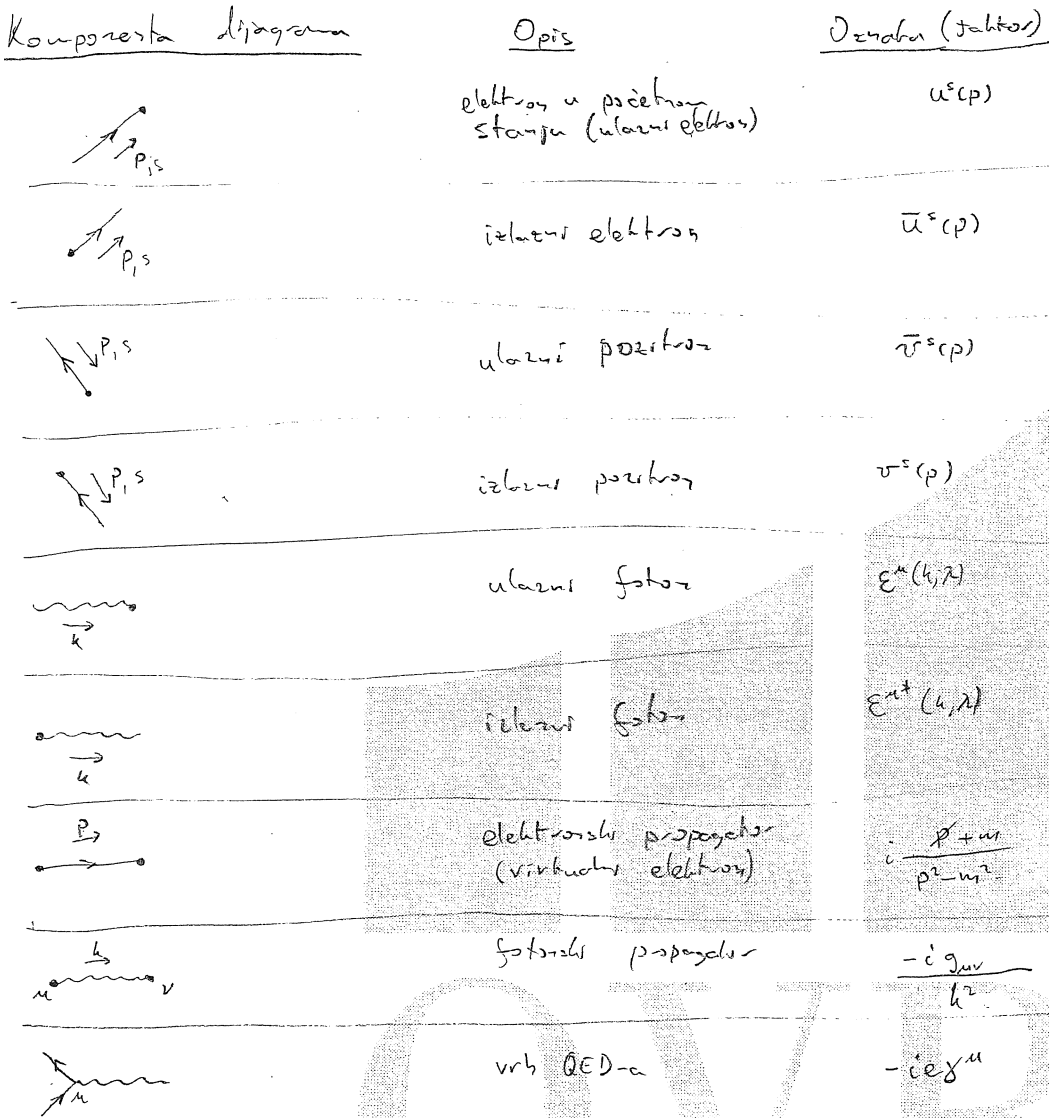 Komponenta dijagrama Opis Oznaka (faktor)
elektron u početnom
stanju (ulazni elektron)
u^s(p)
p, s
izlazni elektron
ū^s(p)
p, s
ulazni pozitron
v̄^s(p)
p, s
izlazni pozitron
v^s(p)
p, s
ulazni foton
ε^μ(k,λ)
k
izlazni foton
ε^μ*(k,λ)
k
p
elektronski propagator
(virtualni elektron)
i (p̸ + m)/(p² - m²)
k
μ ν
fotonski propagator
-i g_μν / k²
μ
vrh QED-a
-ieγ^μ